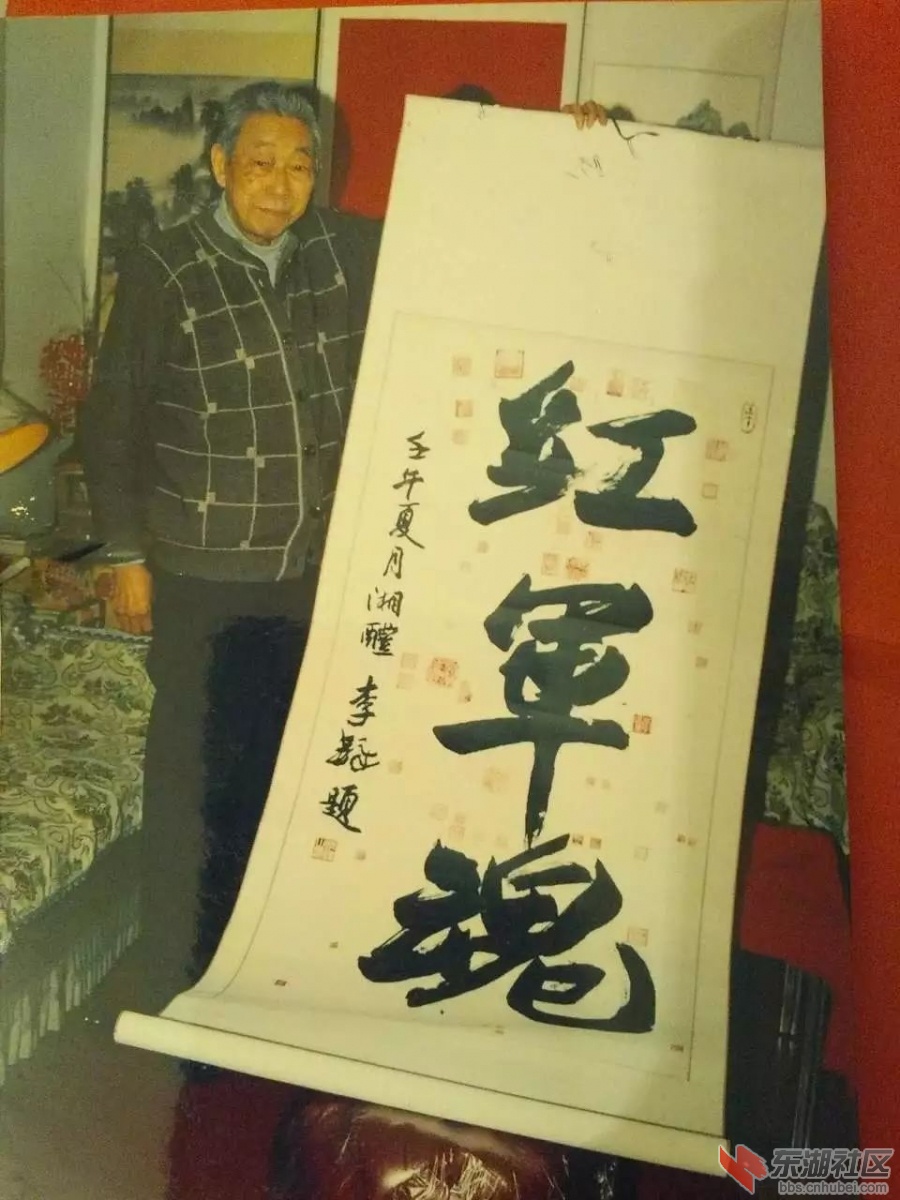 红
军
魂
壬午夏月湘醴 李 题
东湖社区
bbs.cnhubei.com